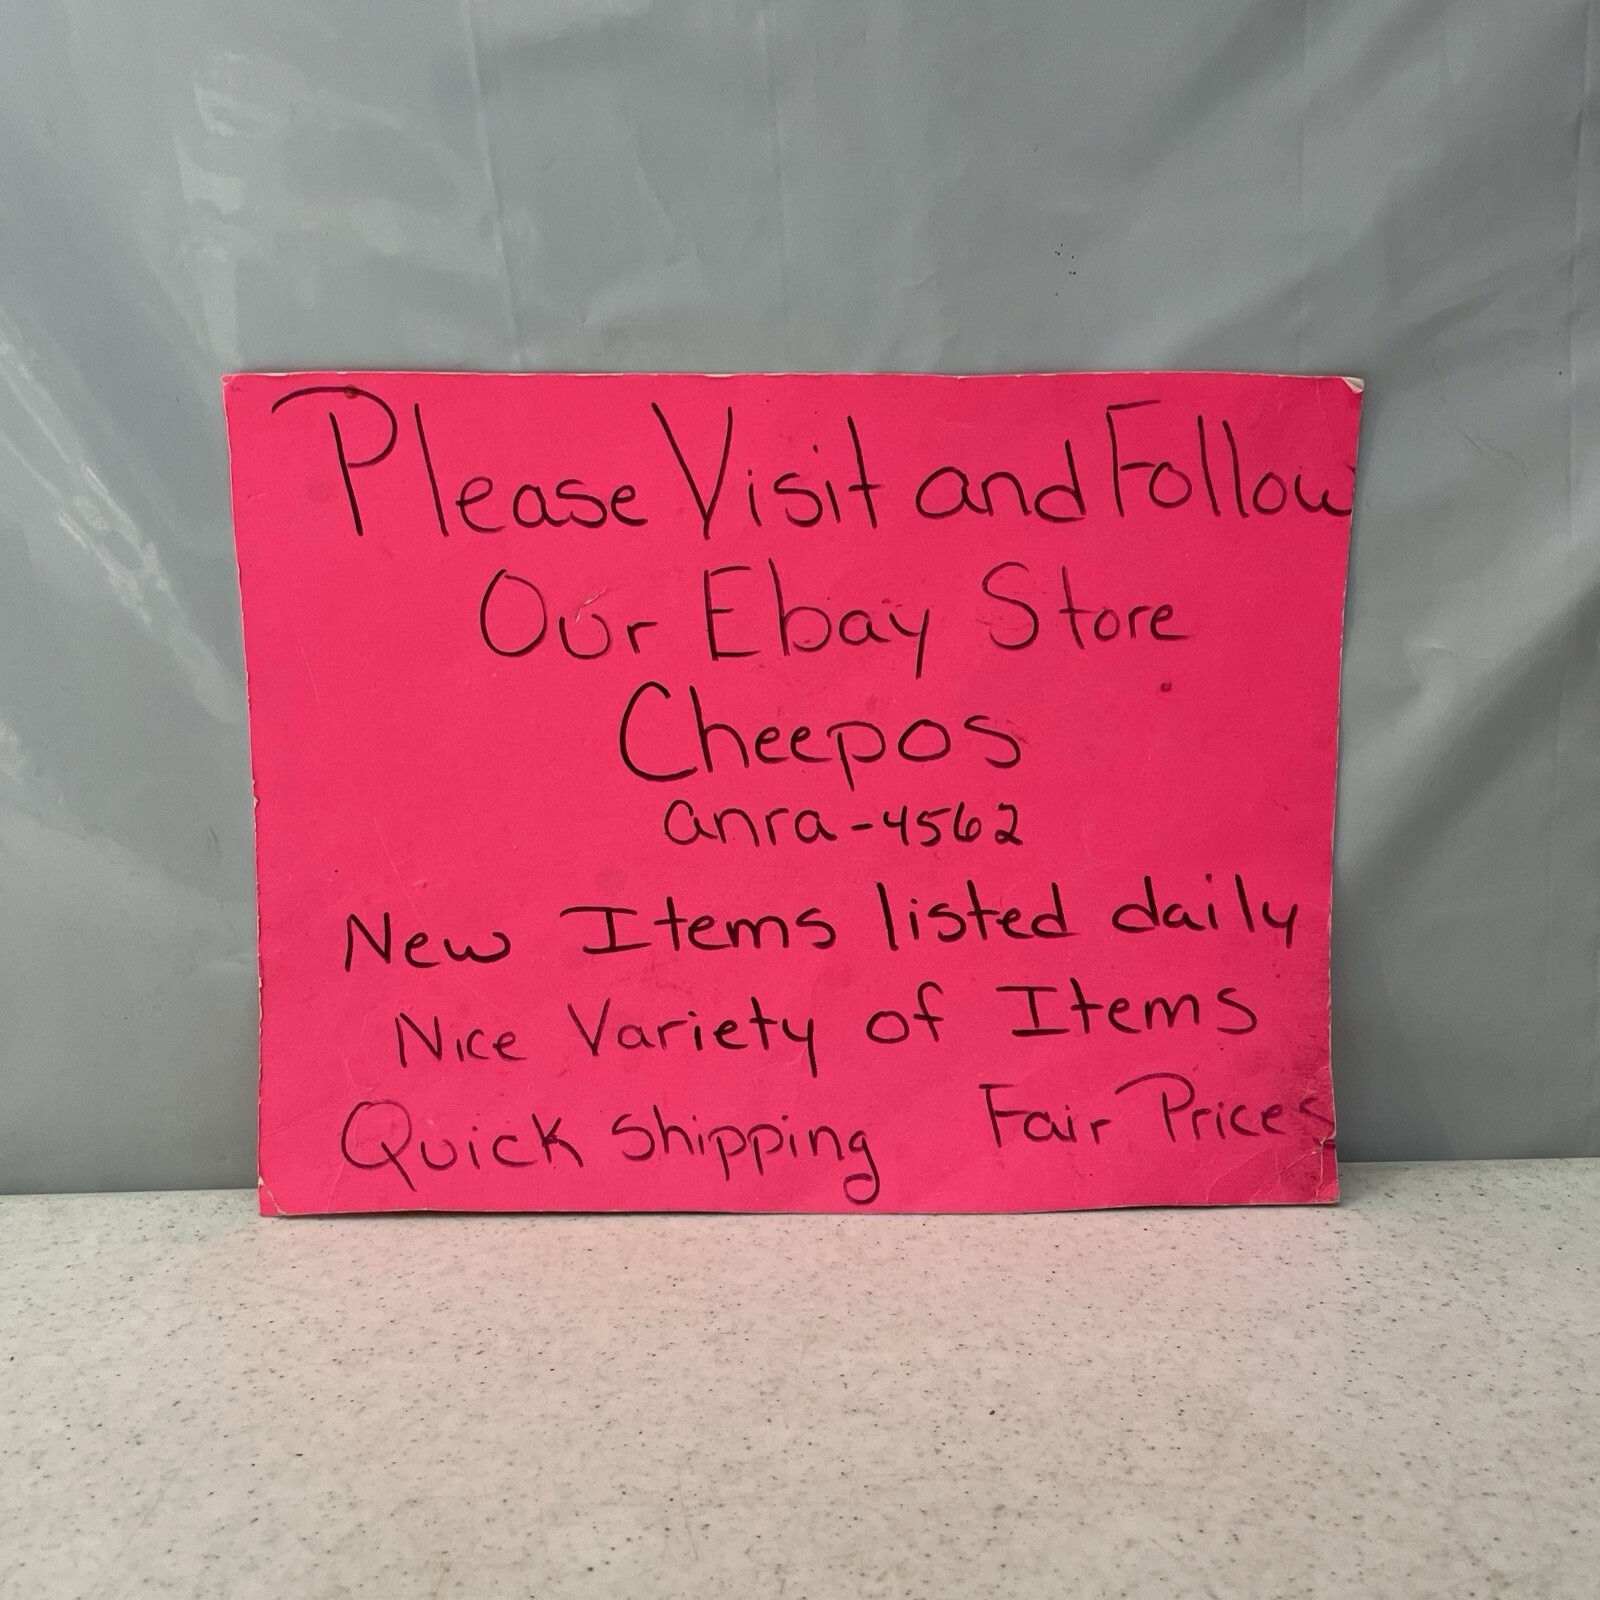 Please Visit and Follow
Our Ebay Store
Cheepos
anra-4562
New Items listed daily
Nice Variety of Items
Quick shipping Fair Prices